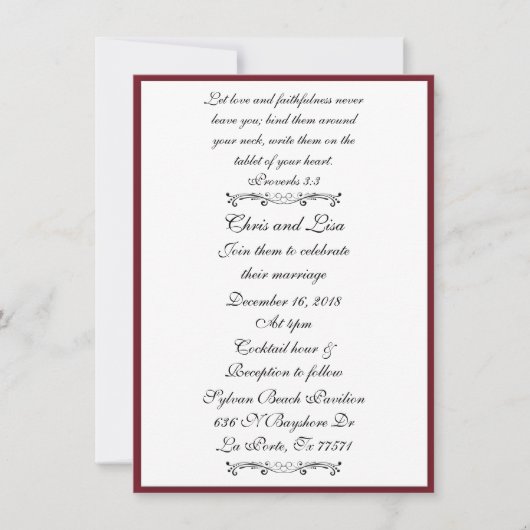 Let love and faithfulness never
leave you; bind them around
your neck, write them on the
tablet of your heart.
Proverbs 3:3
Chris and Lisa
Join them to celebrate
their marriage
December 16, 2018
At 4pm
Cocktail hour &
Reception to follow
Sylvan Beach Pavilion
636 N Bayshore Dr
La Porte, Tx 77571